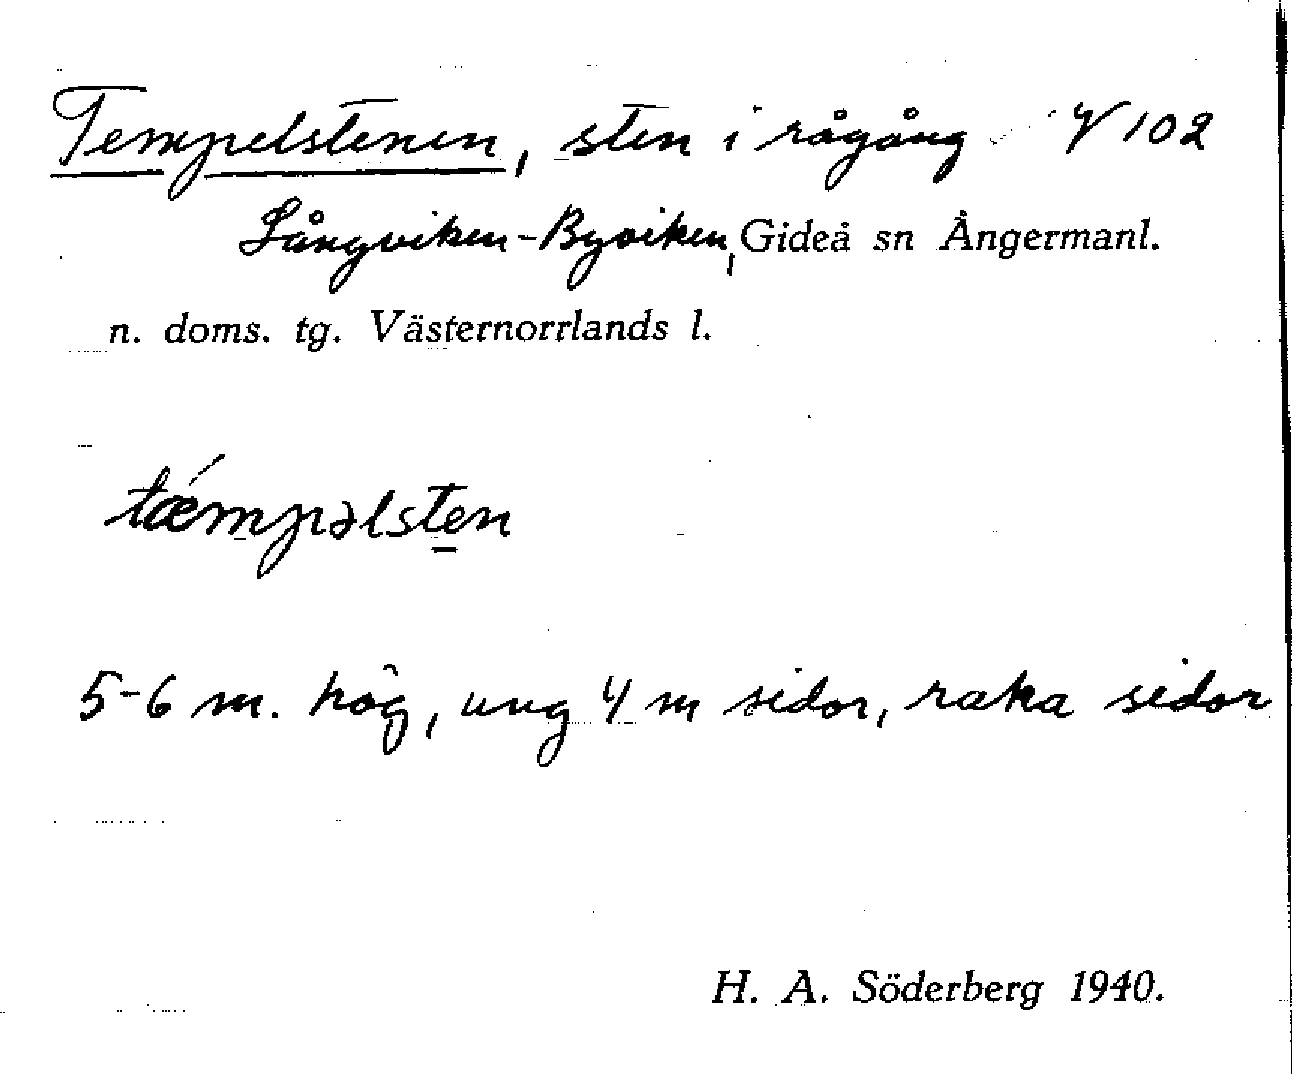 Tempelstenen, sten i rågång V 102
Långviken-Byviken, Gideå sn Ångermanl.
n. doms. tg. Västernorrlands l.
tǽmpəlste̲n
5-6 m. hög, ung 4 m sidor, raka sidor
H. A. Söderberg 1940.